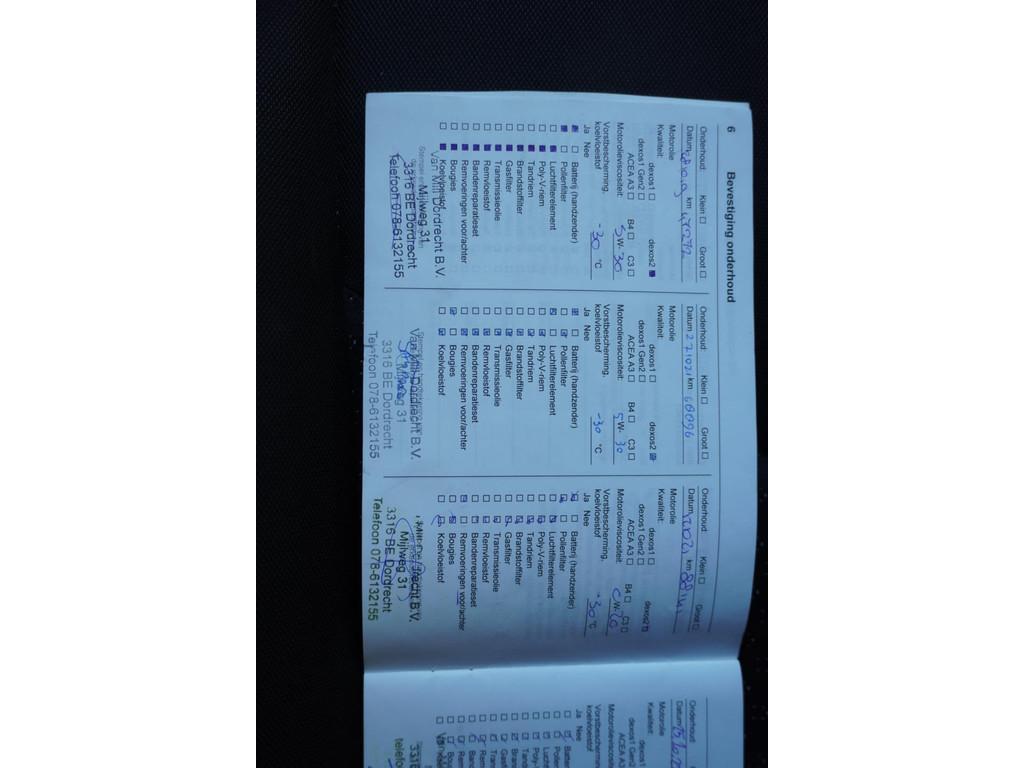 6 Bevestiging onderhoud
Onderhoud: Klein ☐ Groot ☐
Datum km 47272
Motorolie
Kwaliteit: dexos1 ☐ dexos2 ■
dexos1 Gen2 ☐
ACEA A3 ☐ B4 ☐ C3 ☐
Motorolieviscositeit: 5 W- 30
Vorstbescherming,
koelvloeistof -30 °C
Ja Nee
Batterij (handzender)
Pollenfilter
Luchtfilterelement
Poly-V-riem
Tandriem
Brandstoffilter
Gasfilter
Transmissieolie
Remvloeistof
Remvoeringen voor/achter
Bandenreparatieset
Bougies
Koelvloeistof
Van Mill Dordrecht B.V.
Mijlweg 31
3316 BE Dordrecht
Telefoon 078-6132155
Onderhoud: Klein ☐ Groot ☐
Datum 271021 km 68096
Motorolie
Kwaliteit: dexos1 ☐ dexos2
dexos1 Gen2 ☐
ACEA A3 ☐ B4 ☐ C3 ☐
Motorolieviscositeit: 5 W- 30
Vorstbescherming,
koelvloeistof -30 °C
Ja Nee
Batterij (handzender)
Pollenfilter
Luchtfilterelement
Poly-V-riem
Tandriem
Brandstoffilter
Gasfilter
Transmissieolie
Remvloeistof
Bandenreparatieset
Remvoeringen voor/achter
Bougies
Koelvloeistof
Van Mill Dordrecht B.V.
Mijlweg 31
3316 BE Dordrecht
Telefoon 078-6132155
Onderhoud: Klein ☐ Groot ☐
Datum km
Motorolie
Kwaliteit: dexos1 ☐ dexos2
dexos1 Gen2 ☐
ACEA A3 ☐ B4 ☐ C3 ☐
Motorolieviscositeit: W-
Vorstbescherming,
koelvloeistof -30 °C
Ja Nee
Batterij (handzender)
Pollenfilter
Luchtfilterelement
Poly-V-riem
Tandriem
Brandstoffilter
Gasfilter
Transmissieolie
Remvloeistof
Bandenreparatieset
Remvoeringen voor/achter
Bougies
Koelvloeistof
Mill Dordrecht B.V.
Mijlweg 31
3316 BE Dordrecht
Telefoon 078-6132155
Onderhoud:
Datum
Motorolie
Kwaliteit: dexos1
dexos1 Gen2
ACEA A3
Motorolieviscosite
Vorstbescherming
koelvloeistof
Ja Nee
Batter
Pollen
Lucht
Poly-
Tand
Bran
Gas
Tran
Rem
Ban
Rem
Bou
Koe
3316
telefo